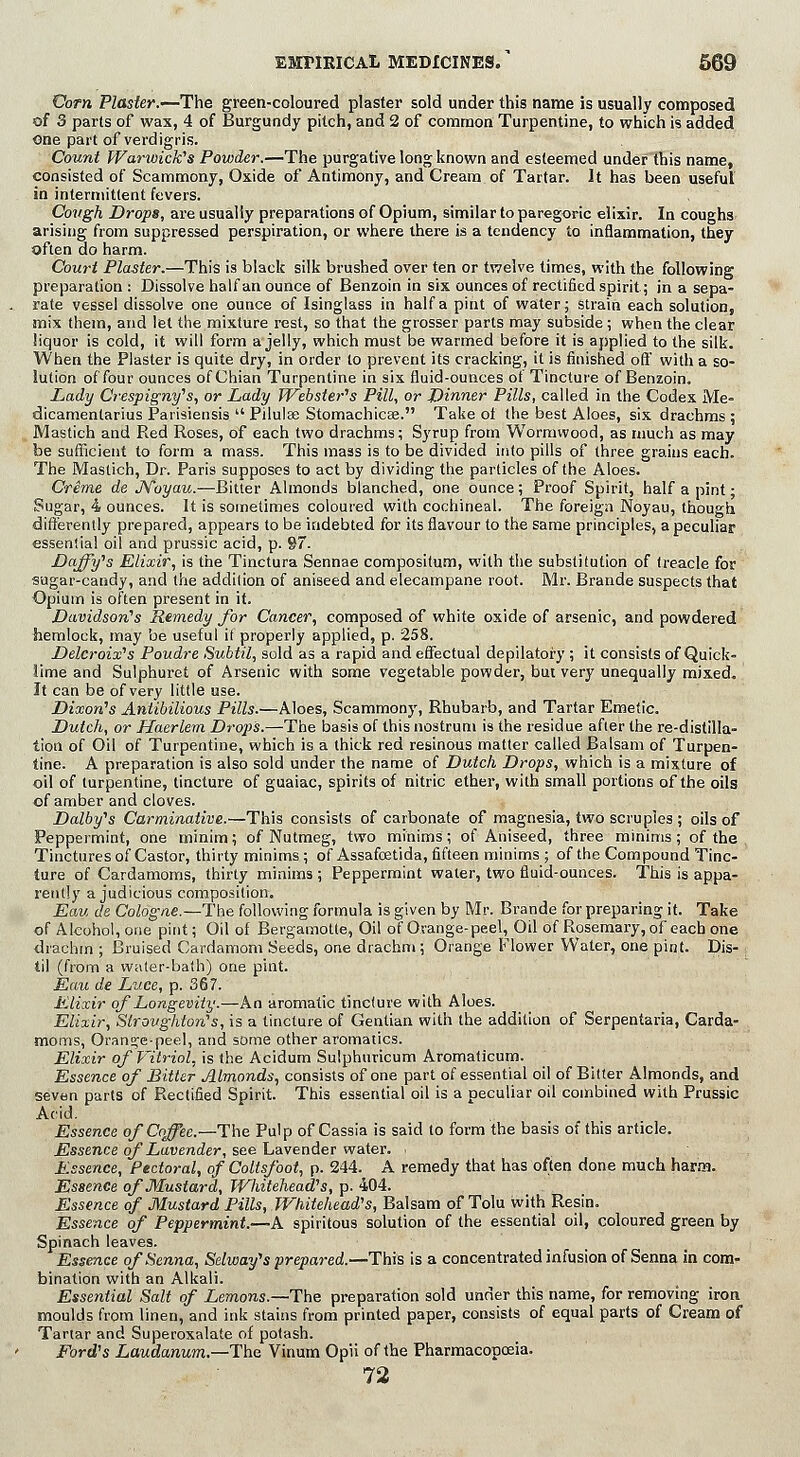 EMPIRICAL MEDICINES. 569
Corn Plaster.—The green-coloured plaster sold under this name is usually composed
of 3 parts of wax, 4 of Burgundy pitch, and 2 of common Turpentine, to which is added
one part of verdigris.
Count Warwick's Powder.—The purgative long known and esteemed under this name,
consisted of Scammony, Oxide of Antimony, and Cream of Tartar. It has been useful
in intermittent fevers.
Cough Drops, are usually preparations of Opium, similar to paregoric elixir. In coughs
arising from suppressed perspiration, or where there is a tendency to inflammation, they
often do harm.
Court Plaster.—This is black silk brushed over ten or twelve times, with the following
preparation: Dissolve half an ounce of Benzoin in six ounces of rectified spirit; in a sepa-
rate vessel dissolve one ounce of Isinglass in half a pint of water; strain each solution,
mix them, and let the mixture rest, so that the grosser parts may subside; when the clear
liquor is cold, it will form a jelly, which must be warmed before it is applied to the silk.
When the Plaster is quite dry, in order to prevent its cracking, it is finished off with a so-
lution of four ounces of Chian Turpentine in six fluid-ounces of Tincture of Benzoin.
Lady Crespigny's, or Lady Webster's Pill, or Dinner Pills, called in the Codex Me-
dicamentarius Parisiensis "Pilulæ Stomachicæ." Take of the best Aloes, six drachms;
Mastich and Red Roses, of each two drachms; Syrup from Wormwood, as much as may
be sufficient to form a mass. This mass is to be divided into pills of three grains each.
The Mastich, Dr. Paris supposes to act by dividing the particles of the Aloes.
Crême de Noyau.—Bitter Almonds blanched, one ounce; Proof Spirit, half a pint;
Sugar, 4 ounces. It is sometimes coloured with cochineal. The foreign Noyau, though
differently prepared, appears to be indebted for its flavour to the same principles, a peculiar
essential oil and prussic acid, p. 97.
Daffy's Elixir, is the Tinctura Sennae compositum, with the substitution of treacle for
sugar-candy, and the addition of aniseed and elecampane root. Mr. Brande suspects that
Opium is often present in it.
Davidson's Remedy for Cancer, composed of white oxide of arsenic, and powdered
hemlock, may be useful if properly applied, p. 258.
Delcroix's Poudre Subtil, sold as a rapid and effectual depilatory; it consists of Quick-
lime and Sulphuret of Arsenic with some vegetable powder, but very unequally mixed.
It can be of very little use.
Dixon's Antibilious Pills.—Aloes, Scammony, Rhubarb, and Tartar Emetic.
Dutch, or Haerlem Drops.—The basis of this nostrum is the residue after the re-distilla-
tion of Oil of Turpentine, which is a thick red resinous matter called Balsam of Turpen-
tine. A preparation is also sold under the name of Dutch Drops, which is a mixture of
oil of turpentine, tincture of guaiac, spirits of nitric ether, with small portions of the oils
of amber and cloves.
Dalby's Carminative.—This consists of carbonate of magnesia, two scruples; oils of
Peppermint, one minim; of Nutmeg, two minims; of Aniseed, three minims; of the
Tinctures of Castor, thirty minims; of Assafœtida, fifteen minims; of the Compound Tinc-
ture of Cardamoms, thirty minims; Peppermint water, two fluid-ounces. This is appa-
rently a judicious composition.
Eau de Cologne.—The following formula is given by Mr. Brande for preparing it. Take
of Alcohol, one pint; Oil of Bergamotte, Oil of Orange-peel, Oil of Rosemary, of each one
drachm; Bruised Cardamom Seeds, one drachm; Orange Flower Water, one pint. Dis-
til (from a water-bath) one pint.
Eau de Luce, p. 367.
Elixir of Longevity.—An aromatic tincture with Aloes.
Elixir, Stroughton's, is a tincture of Gentian with the addition of Serpentaria, Carda-
moms, Orange-peel, and some other aromatics.
Elixir of Vitriol, is the Acidum Sulphuricum Aromaticum.
Essence of Bitter Almonds, consists of one part of essential oil of Bitter Almonds, and
seven parts of Rectified Spirit. This essential oil is a peculiar oil combined with Prussic
Acid.
Essence of Coffee.—The Pulp of Cassia is said to form the basis of this article.
Essence of Lavender, see Lavender water.
Essence, Pectoral, of Coltsfoot, p. 244. A remedy that has often done much harm.
Essence of Mustard, Whitehead's, p. 404.
Essence of Mustard Pills, Whitehead's, Balsam of Tolu with Resin.
Essence of Peppermint.—A spiritous solution of the essential oil, coloured green by
Spinach leaves.
Essence of Senna, Selway's prepared.—This is a concentrated infusion of Senna in com-
bination with an Alkali.
Essential Salt of Lemons.—The preparation sold under this name, for removing iron
moulds from linen, and ink stains from printed paper, consists of equal parts of Cream of
Tartar and Superoxalate of potash.
Ford's Laudanum.—The Vinum Opii of the Pharmacopœia.
72